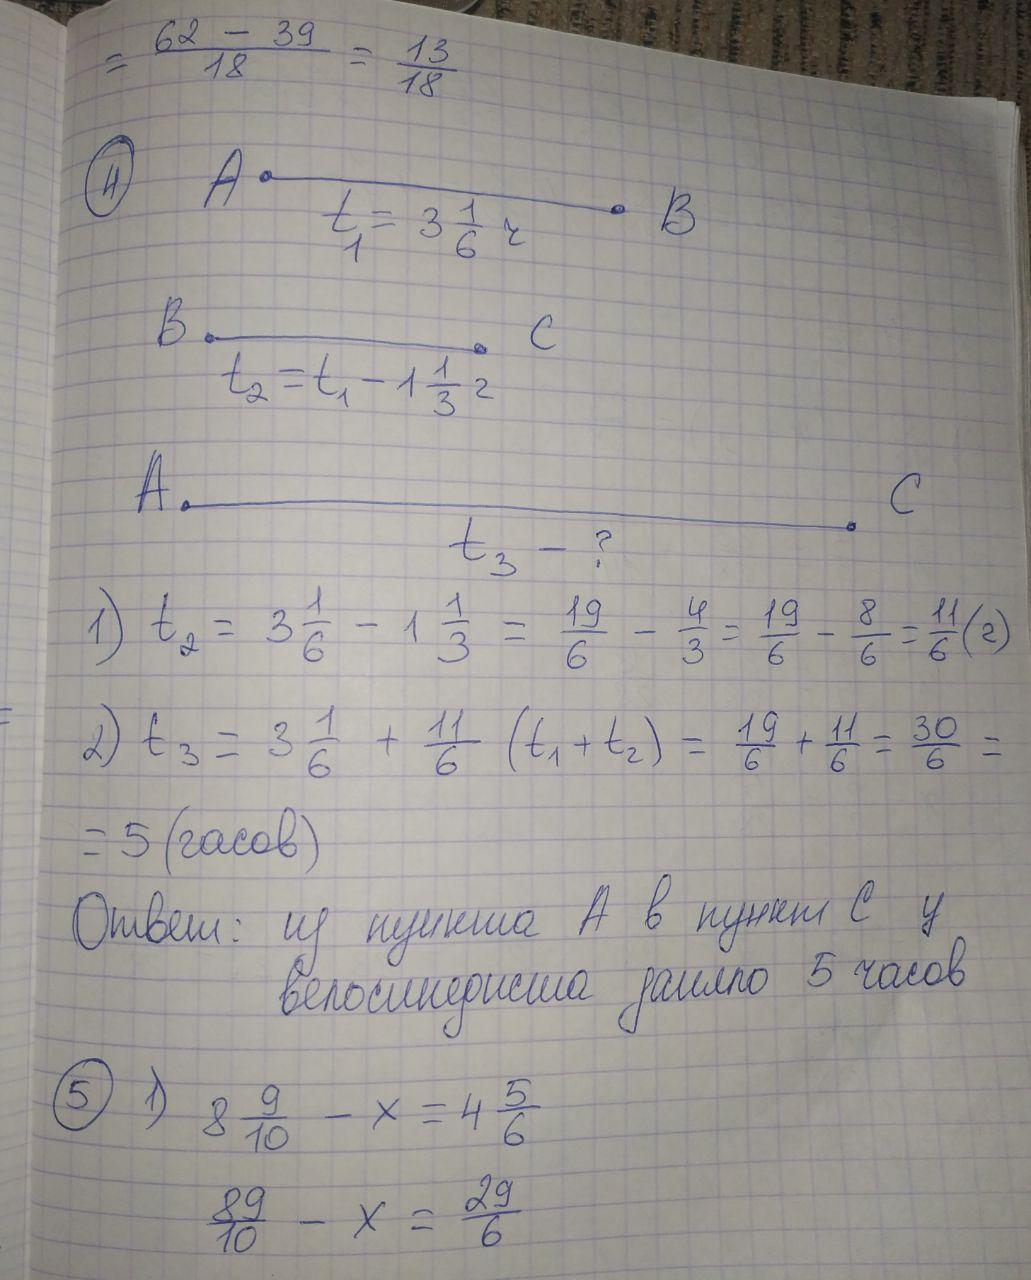 = \frac{62 - 39}{18} = \frac{13}{18}
4
A B
t_1 = 3 \frac{1}{6} ч
B C
t_2 = t_1 - 1 \frac{1}{3} ч
A C
t_3 - ?
1) t_2 = 3 \frac{1}{6} - 1 \frac{1}{3} = \frac{19}{6} - \frac{4}{3} = \frac{19}{6} - \frac{8}{6} = \frac{11}{6} (ч)
2) t_3 = 3 \frac{1}{6} + \frac{11}{6} (t_1 + t_2) = \frac{19}{6} + \frac{11}{6} = \frac{30}{6} =
= 5 (часов)
Ответ: из пункта A в пункт C у
велосипедиста заняло 5 часов
5 1) 8 \frac{9}{10} - x = 4 \frac{5}{6}
\frac{89}{10} - x = \frac{29}{6}